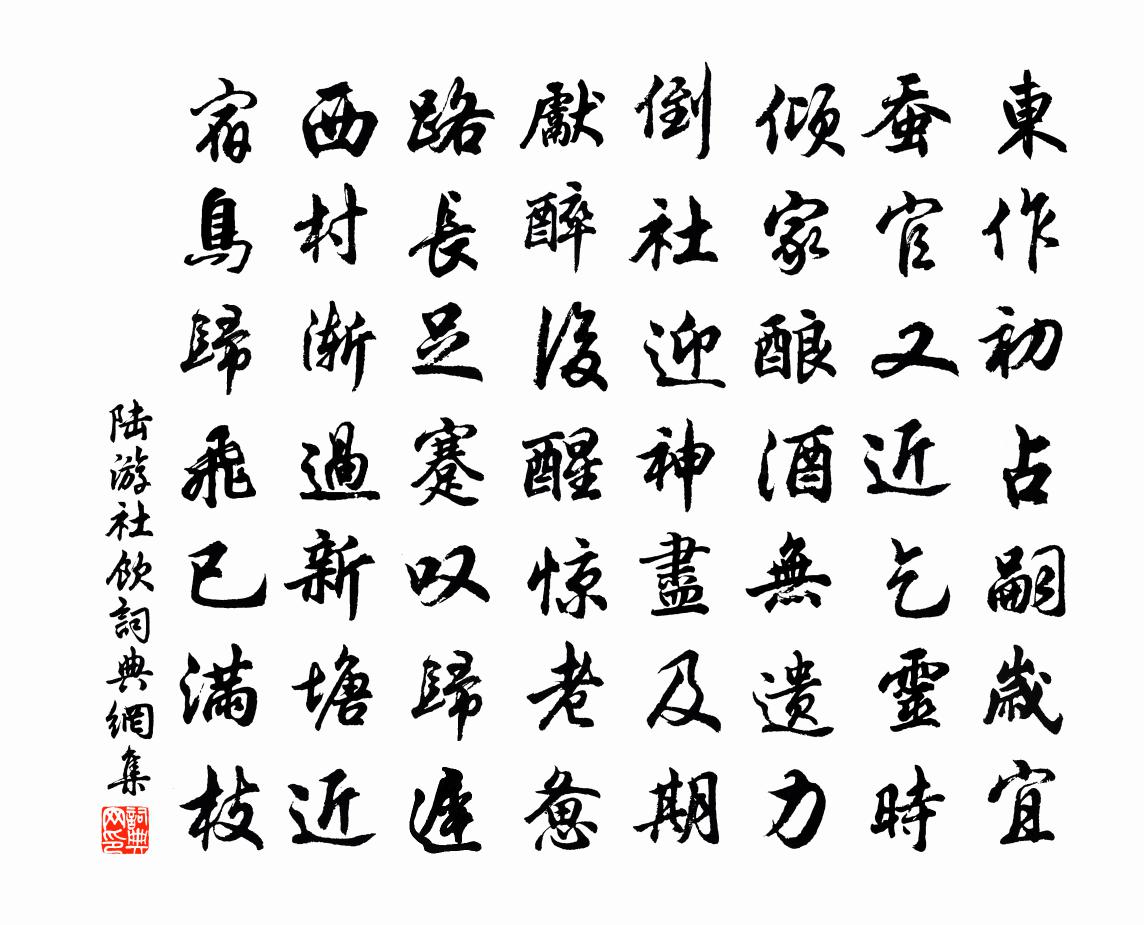 東作初占嗣歲宜
蚕官又近乞靈時
傾家酿酒無遗力
倒社迎神盡及期
獻醉後醒惊老惫
路長足蹇叹歸遲
西村渐過新塘近
宿鳥歸飛已满枝
陆游社饮詞典網集
詞典网印